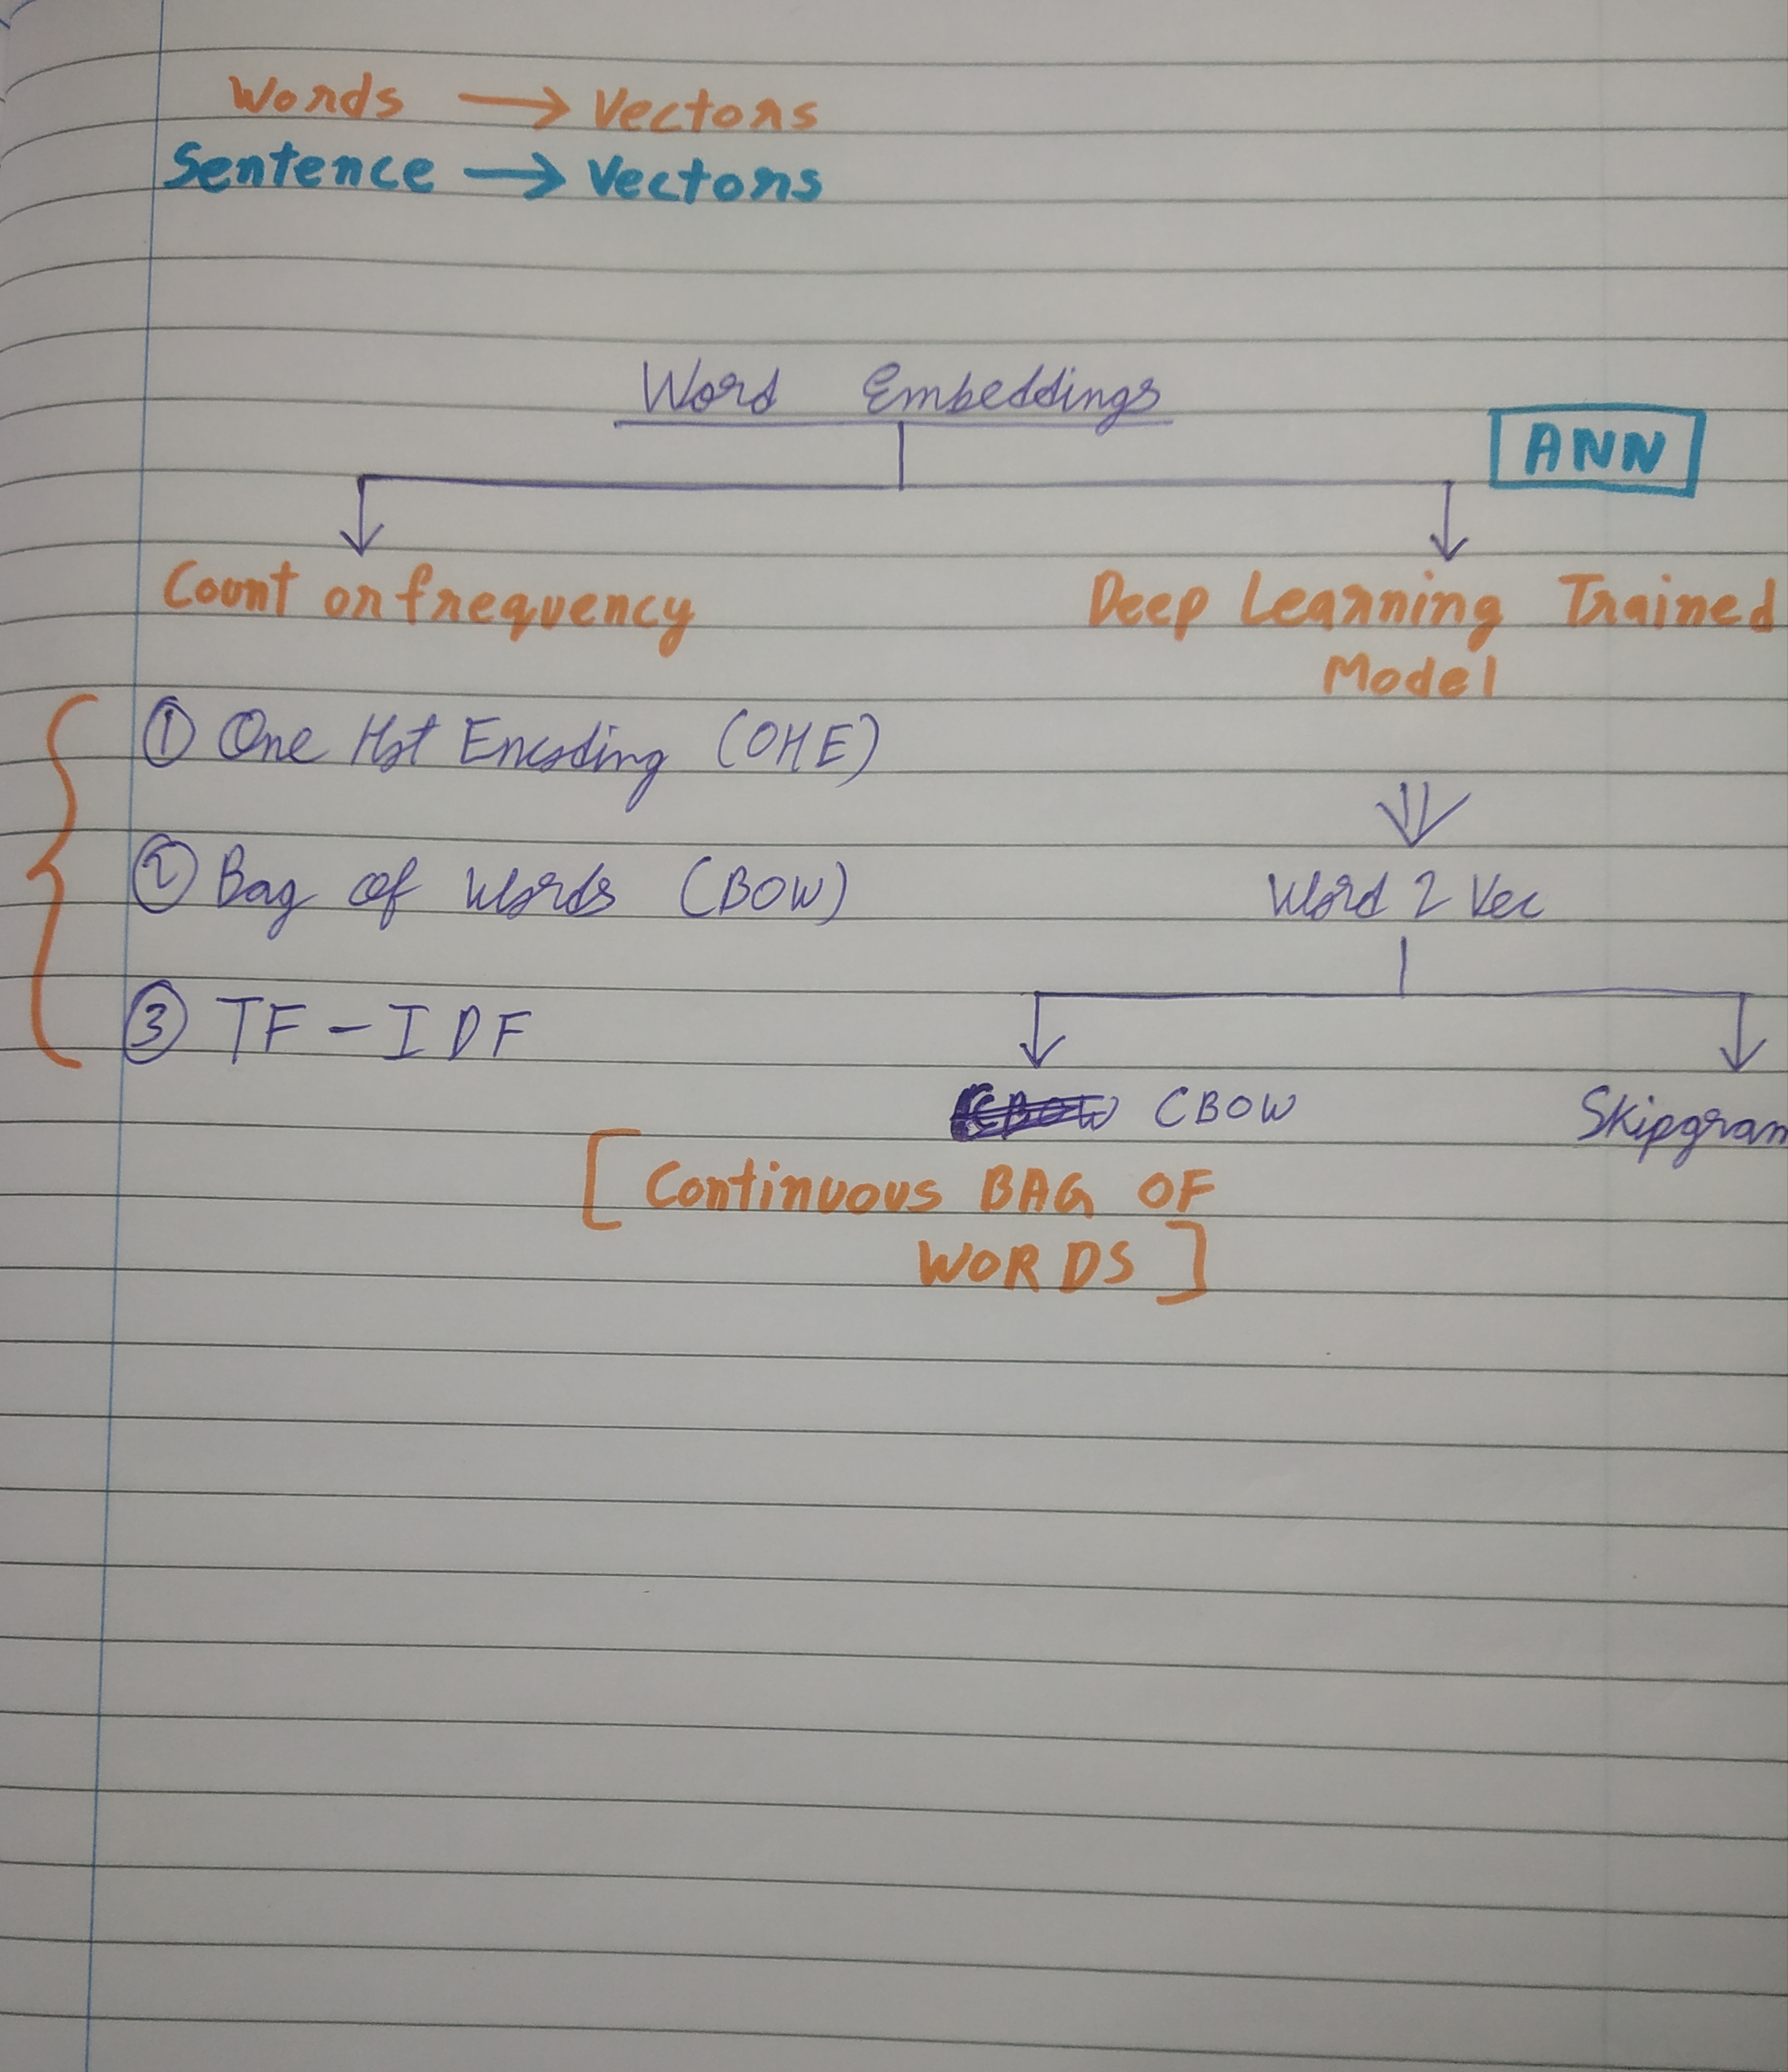 Words → Vectors
Sentence → Vectors
Word Embeddings
ANN
Count or frequency
Deep Learning Trained
Model
① One Hot Encoding (OHE)
② Bag of Words (BOW)
Word 2 Vec
③ TF - IDF
CBOW CBOW
Skipgram
[Continuous BAG OF
WORDS]